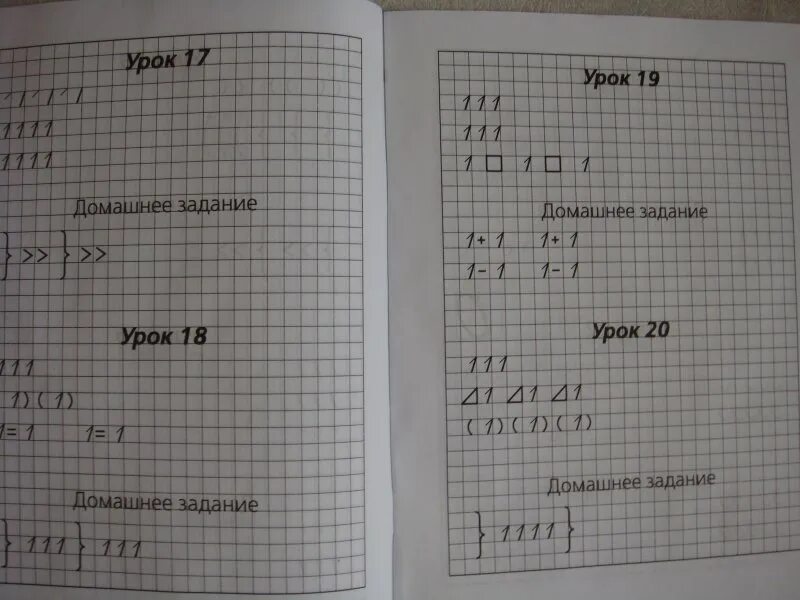 Урок 17
1/1/1/
1111
1111
Домашнее задание
} >> } >>
Урок 18
111
1) ( 1)
1= 1 1= 1
Домашнее задание
} 111 } 111
Урок 19
111
111
1 □ 1 □ 1
Домашнее задание
1+ 1 1+ 1
1- 1 1- 1
Урок 20
111
⊿1 ⊿1 ⊿1
( 1) ( 1) ( 1)
Домашнее задание
} 1111 }